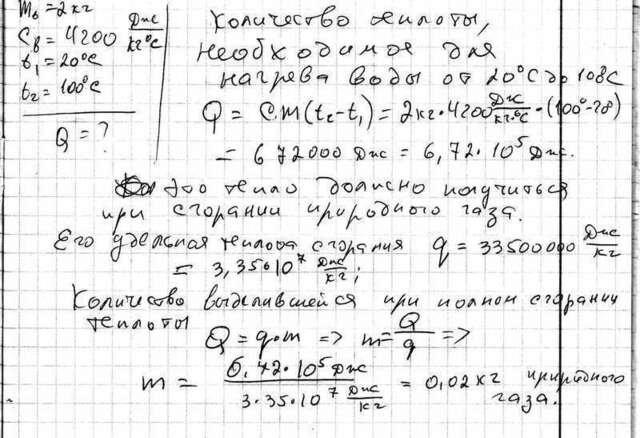 m_в = 2 кг
c_в = 4200 Дж/кг°C
t₁ = 20°C
t₂ = 100°C
Q = ?
Количество теплоты,
необходимое для
нагрева воды от 20°C до 100°C
Q = c·m(t₂-t₁) = 2кг·4200 Дж/кг·°C·(100°-20)
= 672000 Дж = 6,72·10⁵ Дж.
это тепло должно получиться
при сгорании природного газа.
Его удельная теплота сгорания q = 33500000 Дж/кг
= 3,35·10⁷ Дж/кг;
Количество выделившейся при полном сгорании
теплоты
Q = q·m => m = Q/q =>
m = 6,72·10⁵ Дж / 3.35·10⁷ Дж/кг = 0,02 кг природного
газа.